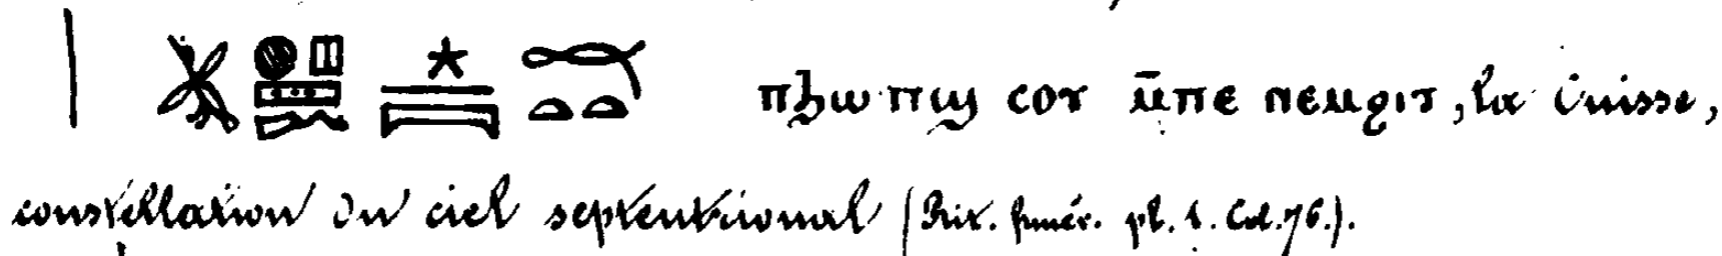 ⲡϧⲱⲡϣ ⲥⲟⲩ ⲙ̄ⲡⲉ ⲡⲉⲙϩⲓⲧ, la Cuisse,
constellation du ciel septentrional (Rit. funér. pl. 1. Col. 76.).